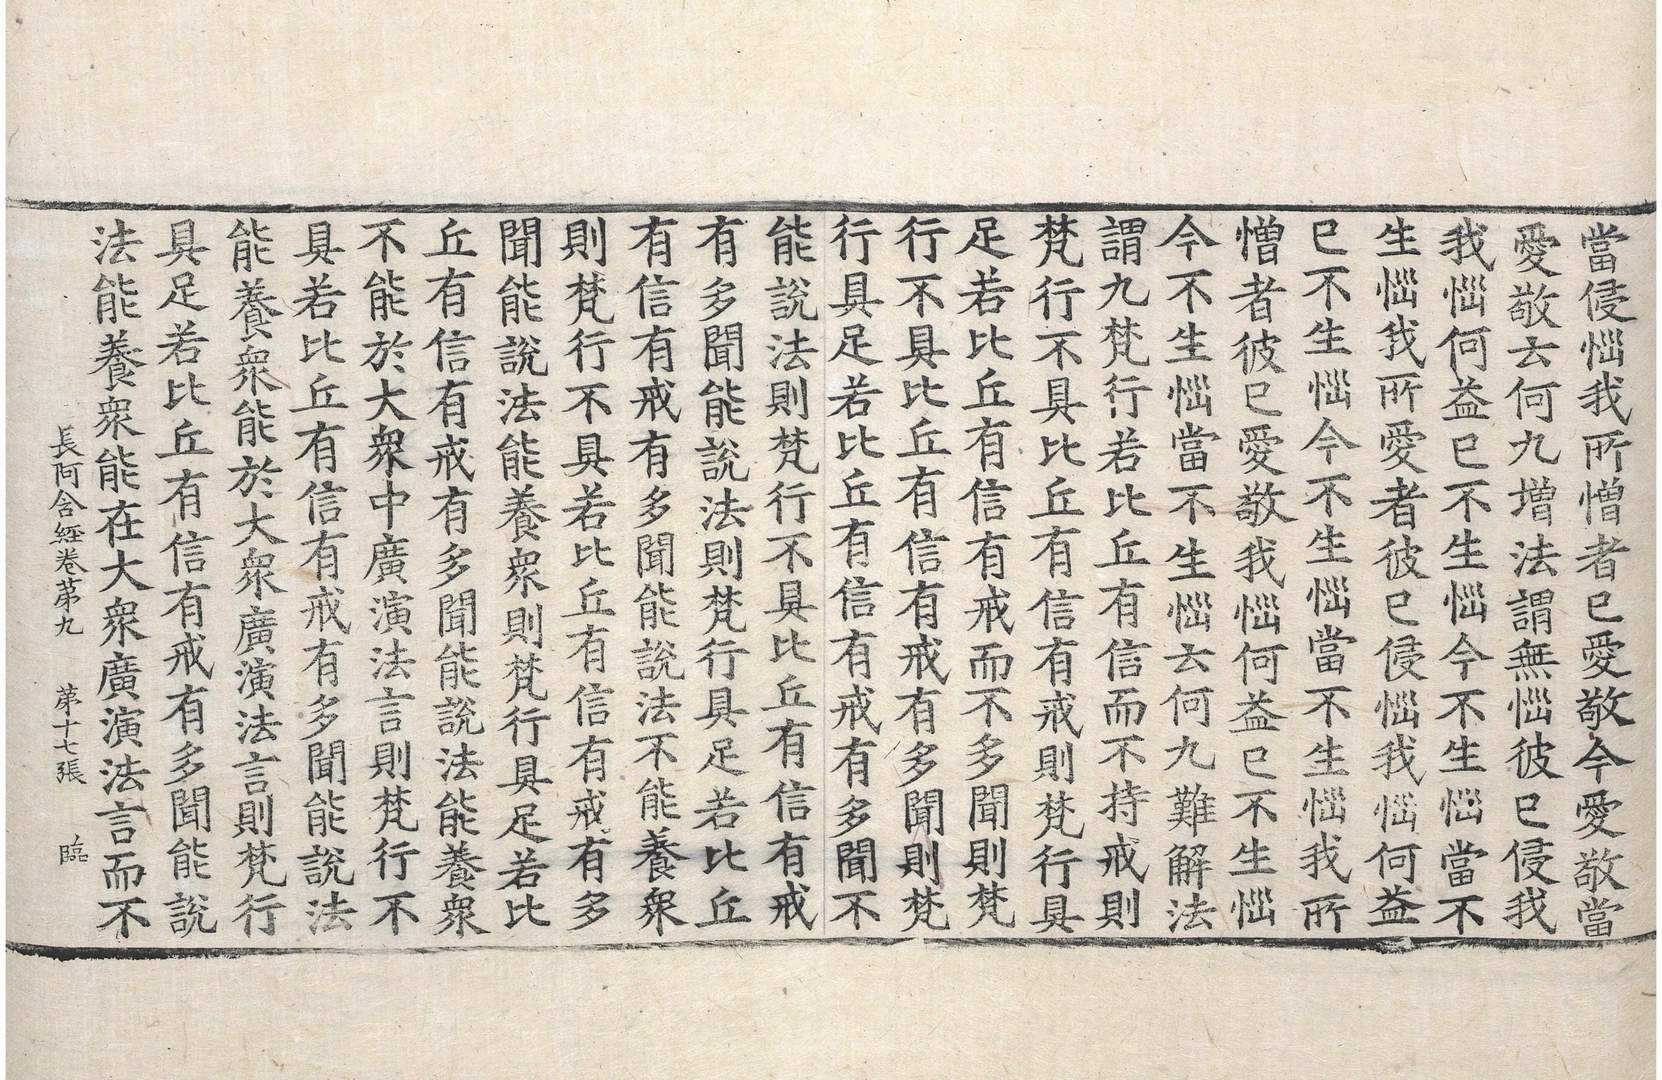 當侵惱我所憎者已愛敬今愛敬當
愛敬云何九增法謂無惱彼已侵我
我惱何益已不生惱今不生惱當不
生惱我所愛者彼已侵惱我惱何益
已不生惱今不生惱當不生惱我所
憎者彼已愛敬我惱何益已不生惱
今不生惱當不生惱云何九難解法
謂九梵行若比丘有信而不持戒則
梵行不具比丘有信有戒則梵行具
足若比丘有信有戒而不多聞則梵
行不具比丘有信有戒有多聞則梵
行具足若比丘有信有戒有多聞不
能說法則梵行不具比丘有信有戒
有多聞能說法則梵行具足若比丘
有信有戒有多聞能說法不能養衆
則梵行不具若比丘有信有戒有多
聞能說法能養衆則梵行具足若比
丘有信有戒有多聞能說法能養衆
不能於大衆中廣演法言則梵行不
具若比丘有信有戒有多聞能說法
能養衆能於大衆廣演法言則梵行
具足若比丘有信有戒有多聞能說
法能養衆能在大衆廣演法言而不
長阿含經卷第九 第十七張 臨